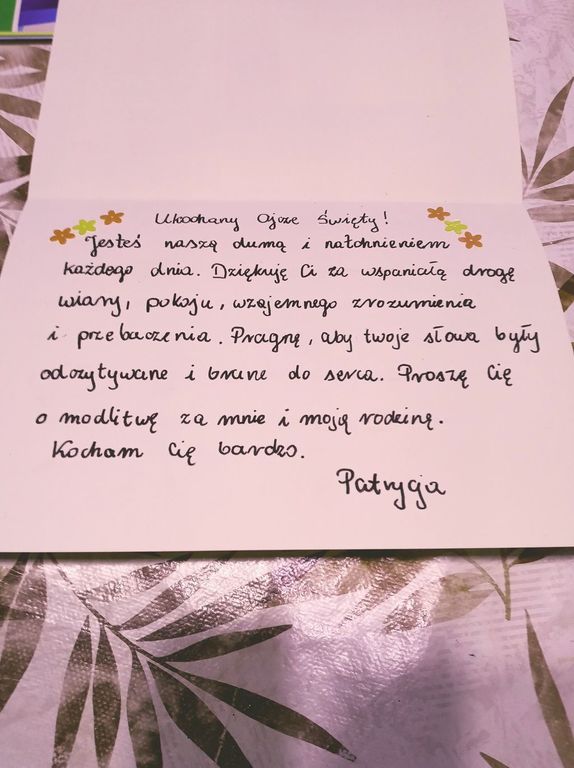 Ukochany Ojcze Święty!
Jesteś naszą dumą i natchnieniem
każdego dnia. Dziękuję Ci za wspaniałą drogę
wiary, pokoju, wzajemnego zrozumienia
i przebaczenia. Pragnę, aby twoje słowa były
odczytywane i brane do serca. Proszę Cię
o modlitwę za mnie i moją rodzinę.
Kocham Cię bardzo.
Patrycja